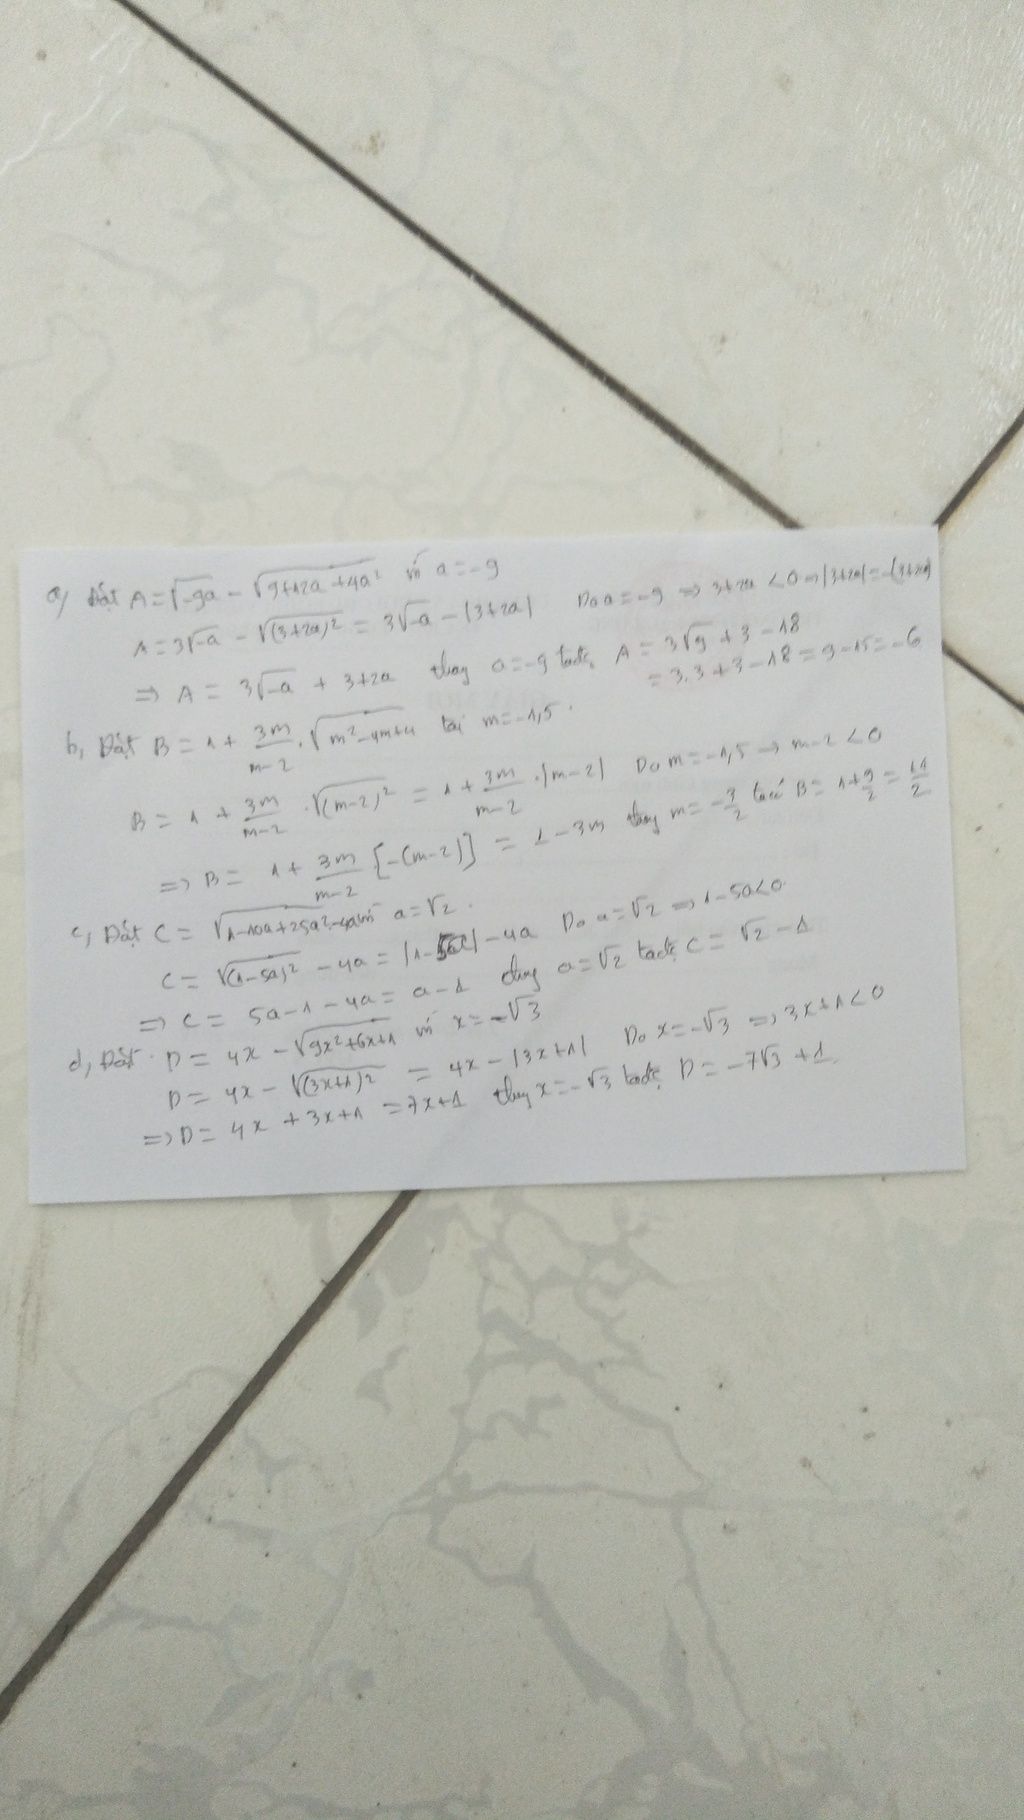 a, Đặt A = √-9a - √9+12a+4a² với a = -9
A = 3√-a - √(3+2a)² = 3√-a - |3+2a| Do a = -9 => 3+2a < 0 => |3+2a| = -(3+2a)
=> A = 3√-a + 3+2a thay a = -9 ta đc A = 3√9 + 3 - 18
= 3.3 + 3 - 18 = 9 - 15 = -6
b, Đặt B = 1 + 3m/m-2 . √m²-4m+4 tại m = -1,5.
B = 1 + 3m/m-2 . √(m-2)² = 1 + 3m/m-2 . |m-2| Do m = -1,5 => m-2 < 0
=> B = 1 + 3m/m-2 [-(m-2)] = 1 - 3m thay m = -3/2 B = 1 + 9/2 = 11/2
c, Đặt C = √1-10a+25a² - 4a với a = √2.
C = √(1-5a)² - 4a = |1-5a| - 4a Do a = √2 => 1-5a < 0
=> C = 5a-1-4a = a-1 thay a = √2 ta đc C = √2 - 1
d, Đặt D = 4x - √9x²+6x+1 với x = -√3
D = 4x - √(3x+1)² = 4x - |3x+1| Do x = -√3 => 3x+1 < 0
=> D = 4x + 3x+1 = 7x+1 thay x = -√3 ta đc D = -7√3 + 1